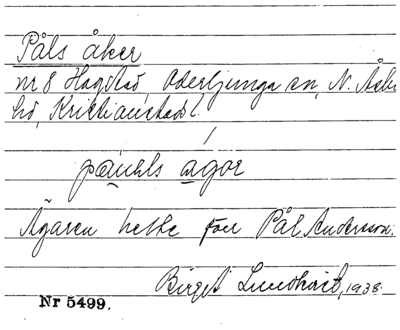 Påls åker
nr 8 Hagstad, Oderljunga sn, N. Åsbo
hd, Kristianstads l.
påuls agor
Ägaren hette förr Pål Andersson.
Birgit Lundkvist, 1938.
Nr 5499.